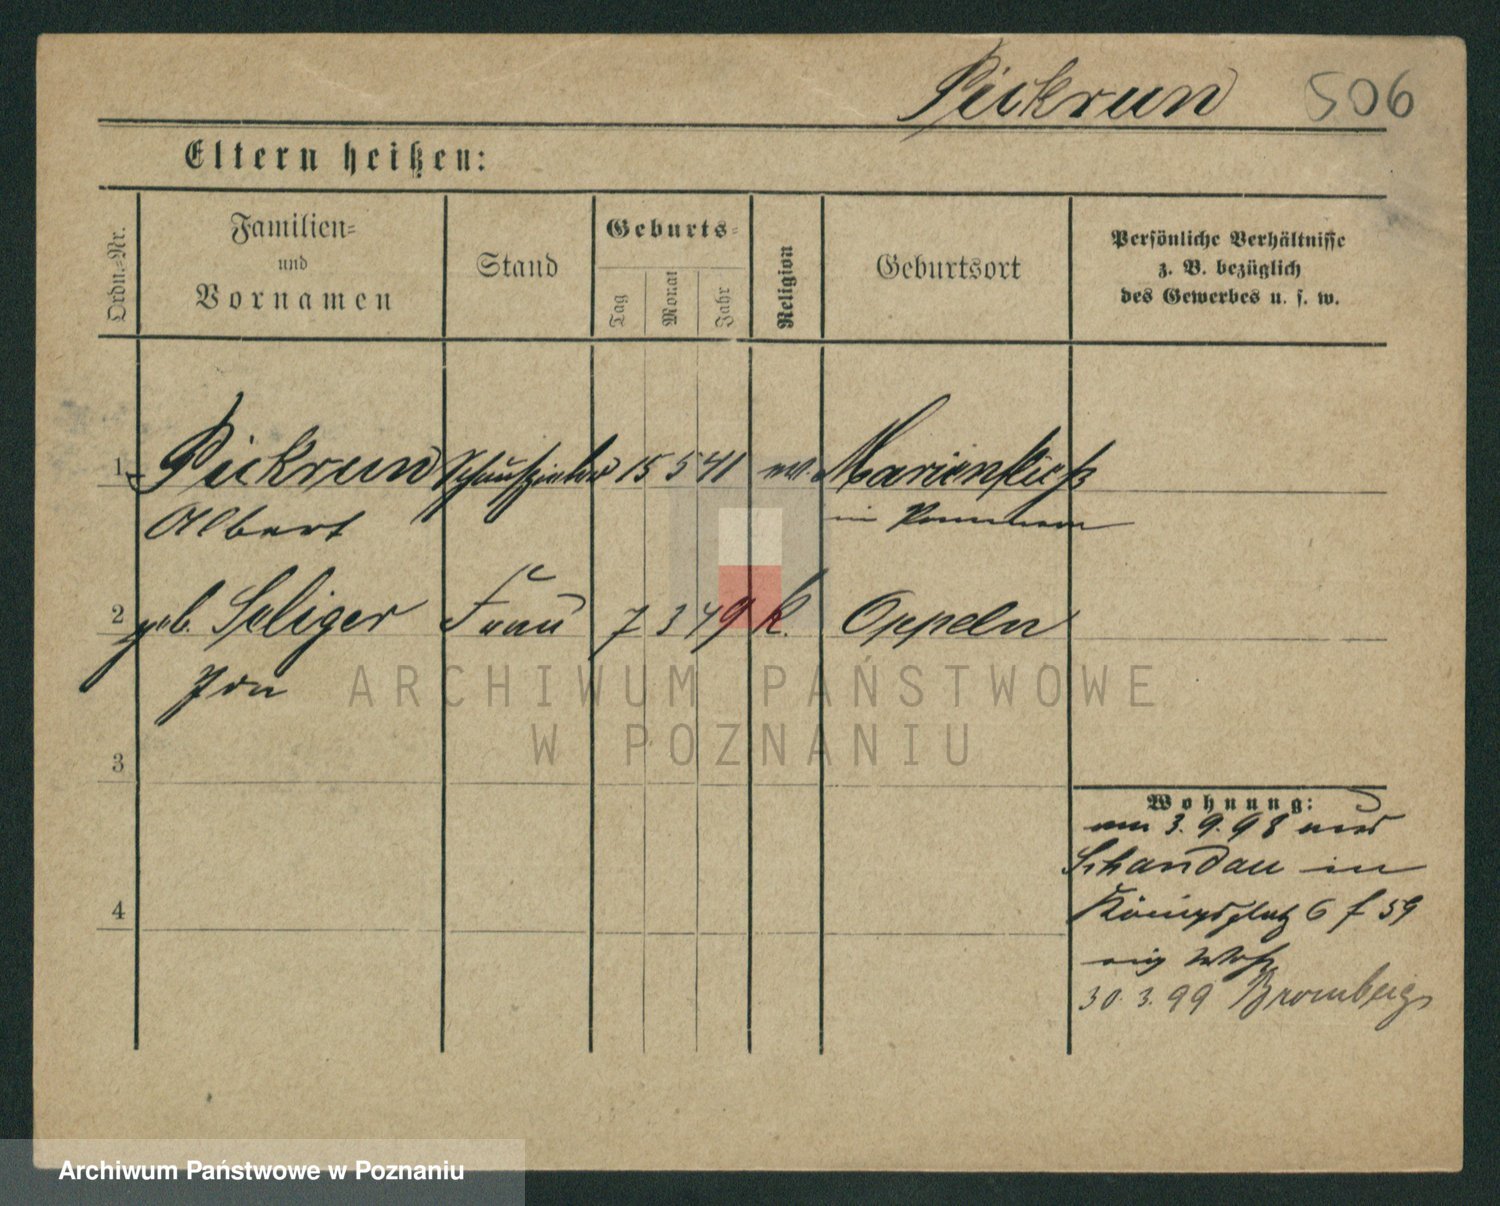 Pickrun 506
Eltern heißen:
Ordn.-Nr.
Familien-
und
Vornamen
Stand
Geburts-
Tag
Monat
Jahr
Religion
Geburtsort
Persönliche Verhältnisse
z. B. bezüglich
des Gewerbes u. s. w.
1 Pickrun Schauspieler 15 5 41 ev. Marienfließ
Albert in Pommern
2 geb. Seliger Frau 7 3 49 k. Oppeln
Ida
ARCHIWUM PAŃSTWOWE
W POZNANIU
3
Wohnung:
am 3. 9. 98 aus
Schandau in
4 Königsplatz 6 f 59
30. 3. 99 Bromberg
Archiwum Państwowe w Poznaniu